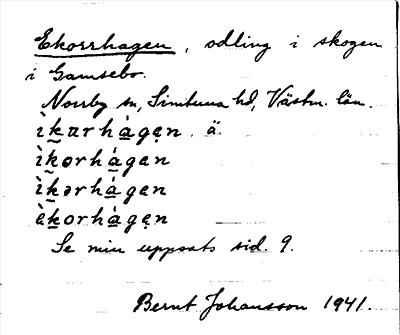 Ekorrhagen, odling i skogen
i Gamsebo.
Norrby sn, Simtuna hd, Västm. län.
ìk̰ɑrhá̱gẹn. ä.
ìk̰orhá̱gan
ìk̰ərhá̱gan
èḵorhá̱gẹn
Se min uppsats sid. 9.
Bernt Johansson 1941.